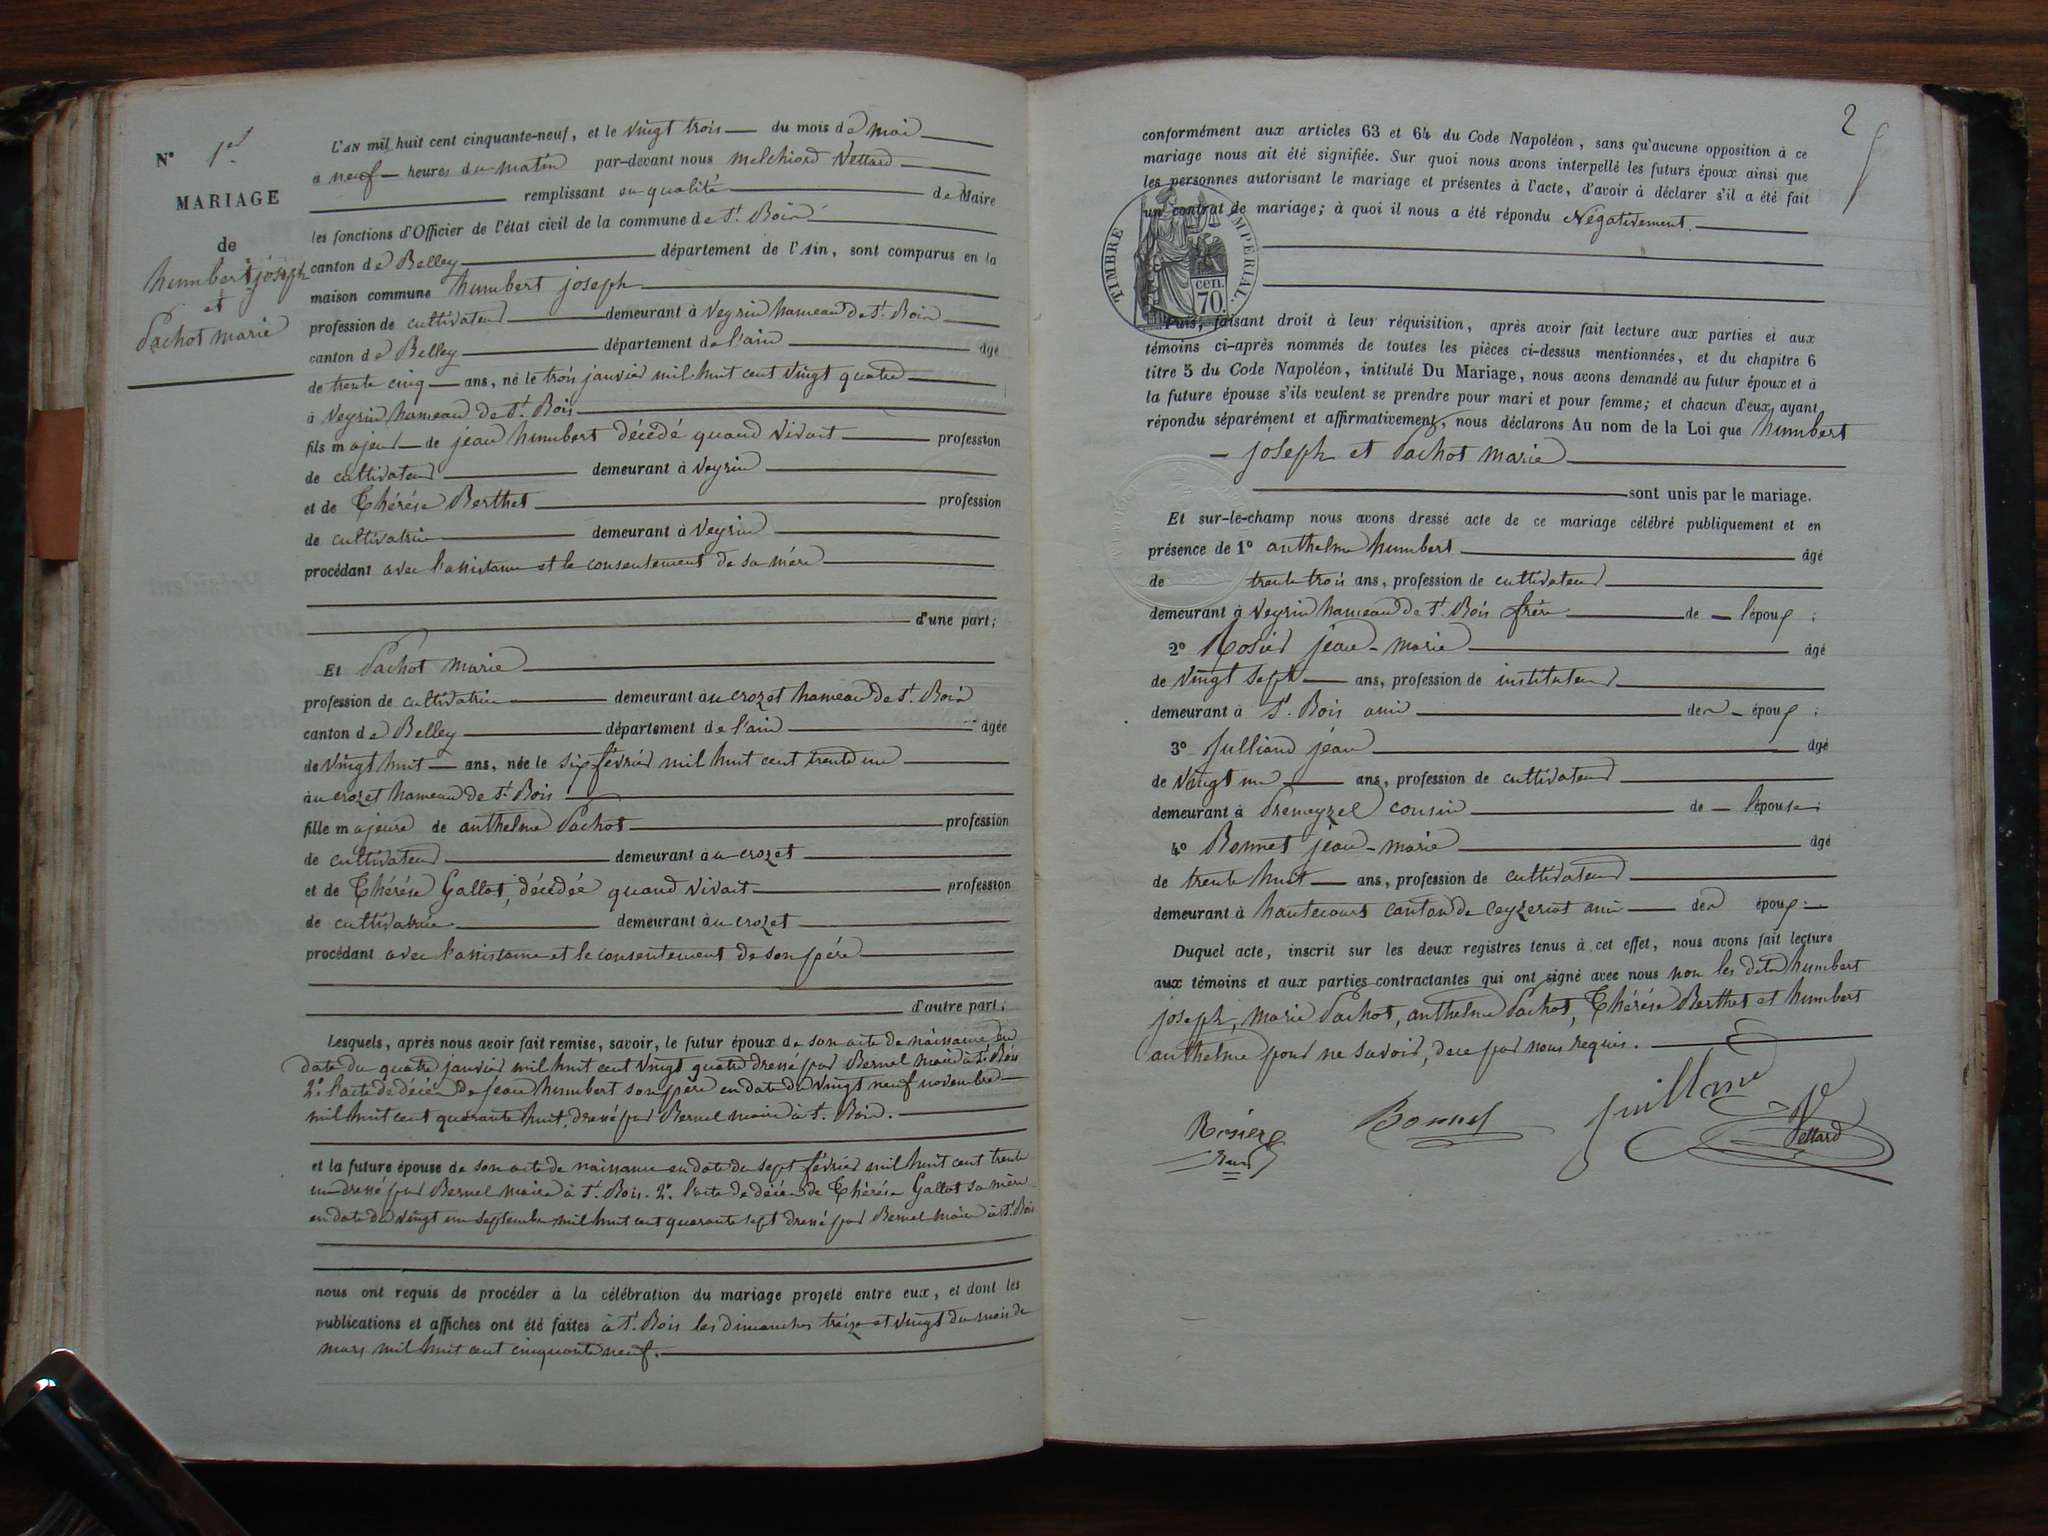 N° 1er
MARIAGE
de
humbert joseph
et
Pachot marie
L'AN mil huit cent cinquante-neuf, et le vingt trois du mois de mai
à neuf heures du matin par-devant nous melchiord Vettard
remplissant en qualité de Maire
les fonctions d'Officier de l'état civil de la commune de St. Bois
canton de Belley département de l'Ain, sont comparus en la
maison commune humbert joseph
profession de cultivateur demeurant à Veyrin hameau de St. Bois
canton de Belley département de l'ain âgé
de trente cinq ans, né le trois janvier mil huit cent vingt quatre
à Veyrin hameau de St. Bois
fils majeur de jean humbert décédé quand vivait profession
de cultivateur demeurant à Veyrin
et de Thérése Berthet profession
de cultivatrice demeurant à Veyrin
procédant avec l'assistance et le consentement de sa mére
d'une part;
Et Pachot marie
profession de cultivatrice demeurant au crozet hameau de St. Bois
canton de Belley département de l'ain âgée
de vingt huit ans, née le six février mil huit cent trente un
au crozet hameau de St. Bois
fille majeure de anthelme Pachot profession
de cultivateur demeurant au crozet
et de Thérése Gallot, décédée quand vivait profession
de cultivatrice demeurant au crozet
procédant avec l'assistance et le consentement de son pére
d'autre part;
Lesquels, après nous avoir fait remise, savoir, le futur époux de son acte de naissance en
date du quatre janvier mil huit cent vingt quatre dressé par Bernel maire à St. Bois
2° l'acte de décès de jean humbert son pére en date du vingt neuf novembre
mil huit cent quarante huit, dressé par Bernel maire à St. Bois.
et la future épouse de son acte de naissance en date du sept février mil huit cent trente
un dressé par Bernel maire à St. Bois. 2° l'acte de décès de Thérése Gallot sa mére
en date du vingt un septembre mil huit cent quarante sept dressé par Bernel maire à St. Bois
nous ont requis de procéder à la célébration du mariage projeté entre eux, et dont les
publications et affiches ont été faites à St. Bois les dimanches treize et vingt du mois de
mars mil huit cent cinquante neuf.
2
conformément aux articles 63 et 64 du Code Napoléon, sans qu'aucune opposition à ce
mariage nous ait été signifiée. Sur quoi nous avons interpellé les futurs époux ainsi que
les personnes autorisant le mariage et présentes à l'acte, d'avoir à déclarer s'il a été fait
un contrat de mariage; à quoi il nous a été répondu Négativement.
TIMBRE IMPÉRIAL.
cen.
70.
Puis, faisant droit à leur réquisition, après avoir fait lecture aux parties et aux
témoins ci-après nommés de toutes les pièces ci-dessus mentionnées, et du chapitre 6
titre 5 du Code Napoléon, intitulé Du Mariage, nous avons demandé au futur époux et à
la future épouse s'ils veulent se prendre pour mari et pour femme; et chacun d'eux ayant
répondu séparément et affirmativement, nous déclarons Au nom de la Loi que humbert
joseph et Pachot marie
sont unis par le mariage.
Et sur-le-champ nous avons dressé acte de ce mariage célébré publiquement et en
présence de 1° anthelme humbert âgé
de trente trois ans, profession de cultivateur
demeurant à Veyrin hameau de St. Bois frère de l'époux;
2° Rosier jean-marie âgé
de vingt sept ans, profession de instituteur
demeurant à St. Bois ami des époux;
3° Julliand jean âgé
de vingt un ans, profession de cultivateur
demeurant à Premeyzel cousin de l'épouse;
4° Bonnet jean-marie âgé
de trente huit ans, profession de cultivateur
demeurant à hautecours canton de Ceyzeriat ami des époux;
Duquel acte, inscrit sur les deux registres tenus à cet effet, nous avons fait lecture
aux témoins et aux parties contractantes qui ont signé avec nous non les dits humbert
joseph, marie Pachot, anthelme Pachot, Thérése Berthet et humbert
anthelme pour ne savoir, de ce par nous requis.
Rosier Bonnet Juilland Vettard